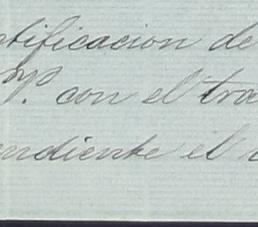 ntificacion de
P. con el tra
endiente el